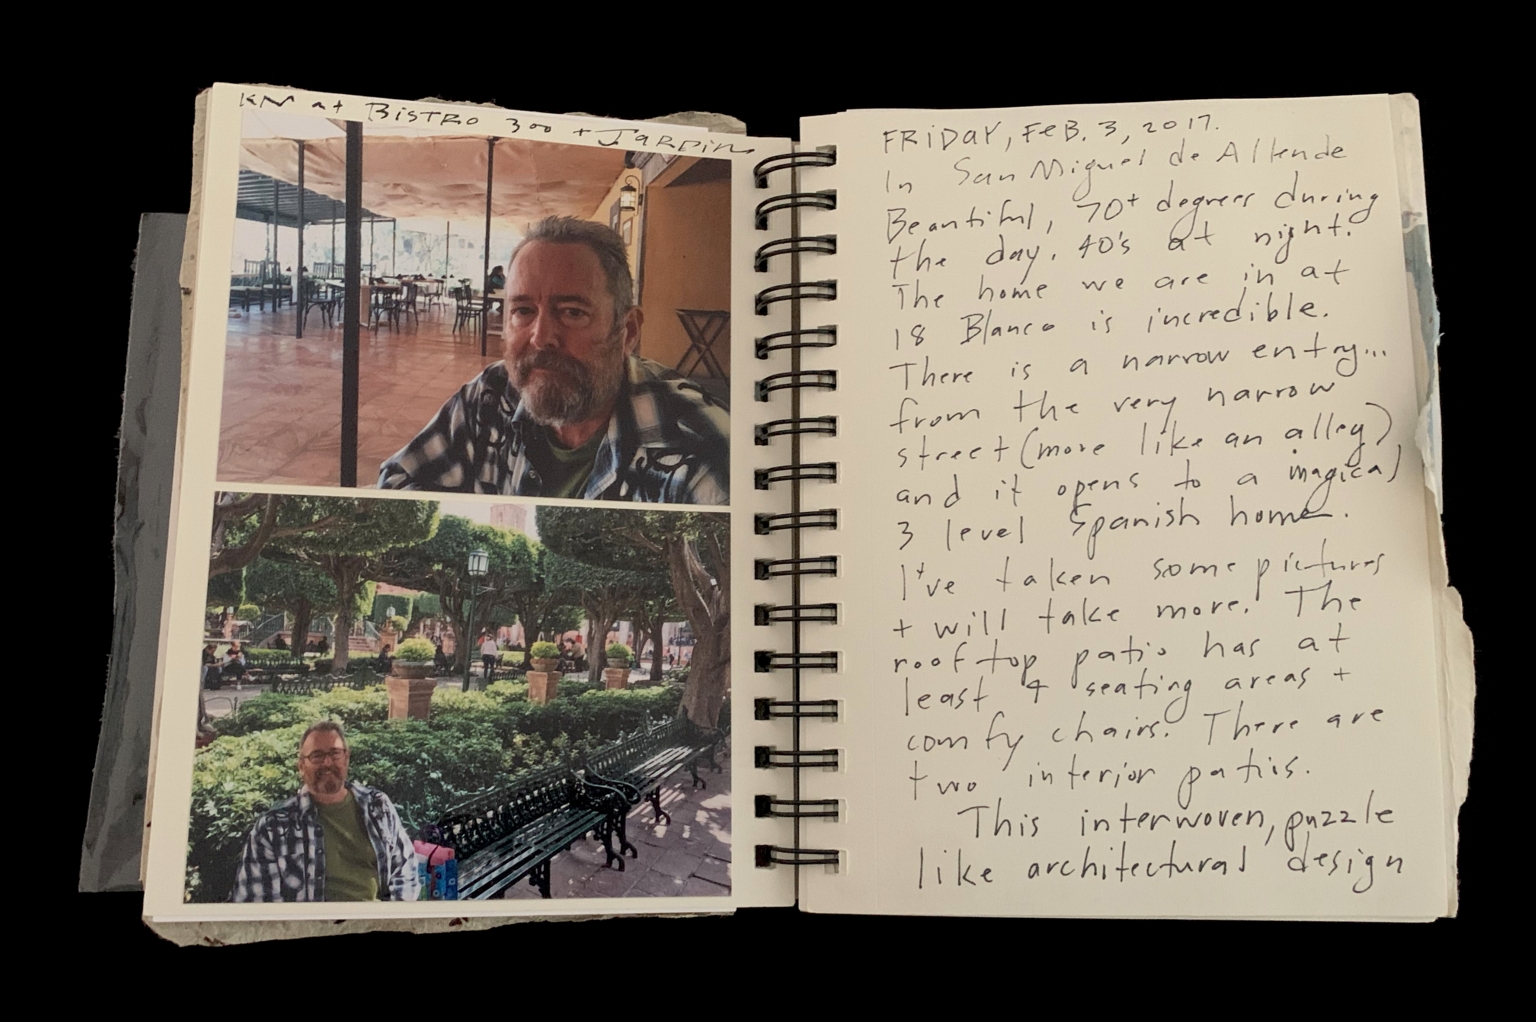 KM at BISTRO 300 + JARDIN
FRIDAY, FEB. 3, 2017.
In San Miguel de Allende
Beautiful, 70+ degrees during
the day. 40's at night.
The home we are in at
18 Blanco is incredible.
There is a narrow entry...
from the very narrow
street (more like an alley)
and it opens to a magical
3 level Spanish home.
I've taken some pictures
+ will take more. The
rooftop patio has at
least 4 seating areas +
comfy chairs. There are
two interior patios.
This interwoven, puzzle
like architectural design